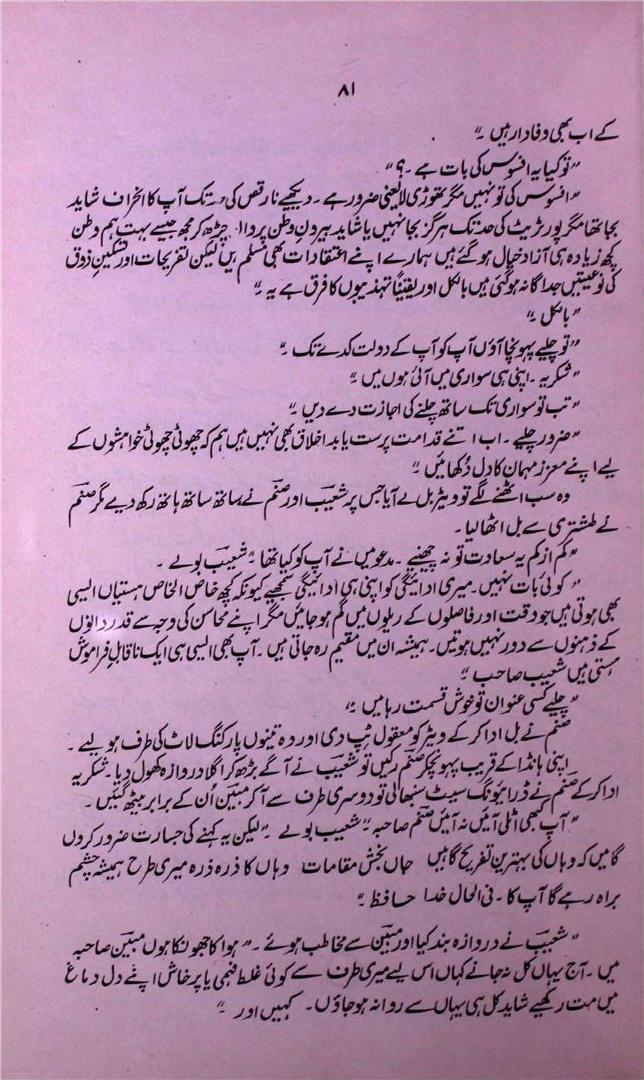 ۸۱
کے اب بھی وفادار ہیں ۔"
"تو کیا یہ افسوس کی بات ہے ۔؟"
"افسوس کی تو نہیں مگر تھوڑی لایعنی ضرور ہے ۔ دیکھیے نا رقص کی حد تک آپ کا انحراف شاید
بجا تھا مگر پورٹریٹ کی حد تک ہرگز بجا نہیں یا شاید بیرونِ وطن پر دا چڑھ کر مجھ جیسے بہت ہم وطن
کچھ زیادہ ہی آزاد خیال ہو گئے ہیں ہمارے اپنے اعتقادات بھی مسلم ہیں لیکن تفریحات اور تسکینِ ذوق
کی نوعیتیں جداگانہ ہو گئی ہیں بالکل اور یقیناً تہذیبوں کا فرق ہے یہ ۔"
"بالکل ۔"
"تو چلیے پہونچا آؤں آپ کو آپ کے دولت کدے تک ۔"
"شکریہ ۔ اپنی ہی سواری میں آئی ہوں میں ۔"
"تب تو سواری تک ساتھ چلنے کی اجازت دے دیں ۔"
"ضرور چلیے ۔ اب اتنے قدامت پرست یا بد اخلاق بھی نہیں ہیں ہم کہ چھوٹی چھوٹی خواہشوں کے
لیے اپنے معزز مہمان کا دل دُکھائیں ۔"
وہ سب اٹھنے لگے تو ویٹر بل لے آیا جس پر شعیب اور صنم نے ساتھ ساتھ ہاتھ رکھ دیے مگر صنم
نے طشتری سے بل اٹھا لیا ۔
"کم از کم یہ سعادت تو نہ چھینیے ۔ مدعو میں نے آپ کو کیا تھا ۔" شعیب بولے ۔
"کوئی بات نہیں ۔ میری ادائیگی کو اپنی ہی ادائیگی سمجھیے کیونکہ کچھ خاص الخاص ہستیاں ایسی
بھی ہوتی ہیں جو وقت اور فاصلوں کے ریلوں میں گم ہو جائیں مگر اپنے محاسن کی وجہ سے قدر دانوں
کے ذہنوں سے دور نہیں ہوتیں ۔ ہمیشہ ان میں مقیم رہ جاتی ہیں ۔ آپ بھی ایسی ہی ایک ناقابلِ فراموش
ہستی ہیں شعیب صاحب ۔"
"چلیے کسی عنوان تو خوش قسمت رہا میں ۔"
صنم نے بل ادا کر کے ویٹر کو معقول ٹپ دی اور وہ تینوں پارکنگ لاٹ کی طرف ہو لیے ۔
اپنی ہانڈا کے قریب پہونچ کر صنم رکیں تو شعیب نے آگے بڑھ کر اگلا دروازہ کھول دیا ۔ شکریہ
ادا کر کے صنم نے ڈرائیونگ سیٹ سنبھالی تو دوسری طرف سے آ کر مبین اُن کے برابر بیٹھ گئیں ۔
"آپ کبھی اٹلی آئیں نہ آئیں صنم صاحبہ" شعیب بولے ۔ "لیکن یہ کہنے کی جسارت ضرور کروں
گا میں کہ وہاں کی بہترین تفریح گاہیں جاں بخش مقامات وہاں کا ذرہ ذرہ میری طرح ہمیشہ چشم
براہ رہے گا آپ کا ۔ فی الحال خدا حافظ ۔"
"شعیب نے دروازہ بند کیا اور مبین سے مخاطب ہوئے ۔" ہوا کا جھونکا ہوں مبین صاحبہ
میں ۔ آج یہاں کل نہ جانے کہاں اس لیے میری طرف سے کوئی غلط فہمی یا پرخاش اپنے دل دماغ
میں مت رکھیے شاید کل ہی یہاں سے روانہ ہو جاؤں ۔ کہیں اور ۔"